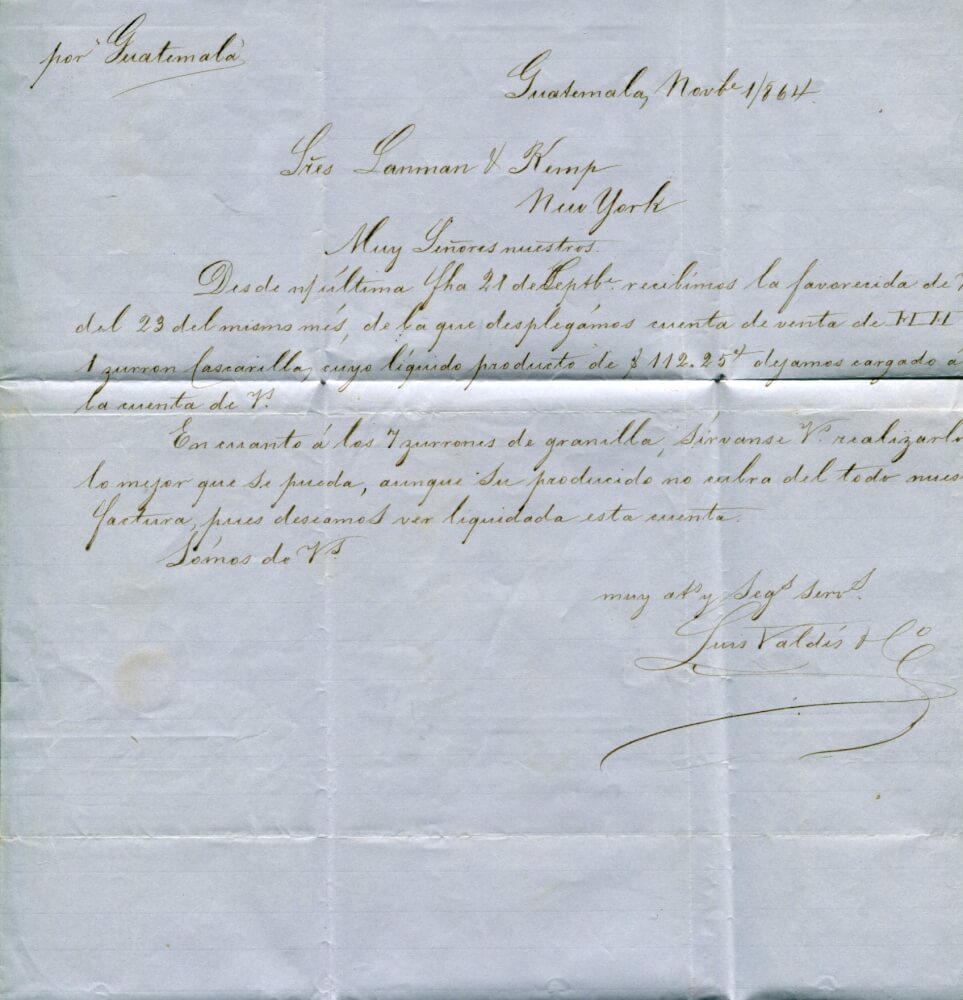 por "Guatemala"
Guatemala, Novbe 1/864.
Sres Lanman & Kemp
New York
Muy Señores nuestros.
Desde n/ última fha 21 de Septbe. recibimos la favorecida de
del 23 del mismo més, de la que desplegámos cuenta de venta de
1 zurron Cascarilla, cuyo líquido producto de $ 112.25 dejamos cargado á
la cuenta de Vs.
En cuanto á los 7 zurrones de granilla, sírvanse Vs. realizarlo
lo mejor que se pueda, aunque su producido no cubra del todo nues
factura, pues deseamos ver liquidada esta cuenta.
Sómos de Vs
muy ats y Segs Servs.
Luis Valdés & Co